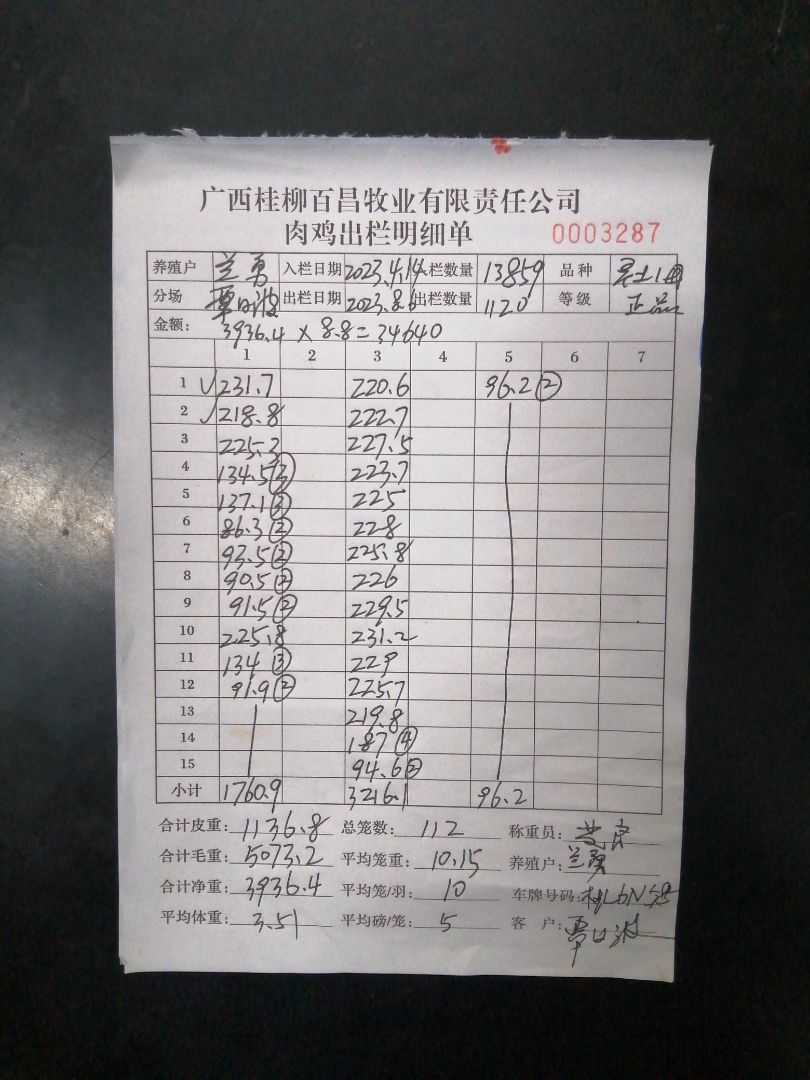 广西桂柳百昌牧业有限责任公司
肉鸡出栏明细单 0003287
养殖户 兰勇 入栏日期 2023.4.14 入栏数量 13859 品种
分场 覃日波 出栏日期 2023.8.6 出栏数量 1120 等级 正品
金额: 3936.4 × 8.8=34640
1 2 3 4 5 6 7
1 √231.7 220.6 96.2②
2 √218.8 222.7
3 225.3 227.5
4 134.5③ 223.7
5 137.1③ 225
6 86.3② 228
7 93.5② 225.8
8 90.5② 226
9 91.5② 229.5
10 225.8 231.2
11 134③ 229
12 91.9② 225.7
13 219.8
14 187④
15 94.6②
小计 1760.9 3216.1 96.2
合计皮重: 1136.8 总笼数: 112 称重员:
合计毛重: 5073.2 平均笼重: 10.15 养殖户: 兰勇
合计净重: 3936.4 平均笼/羽: 10 车牌号码:
平均体重: 3.51 平均磅/笼: 5 客 户: 覃日波